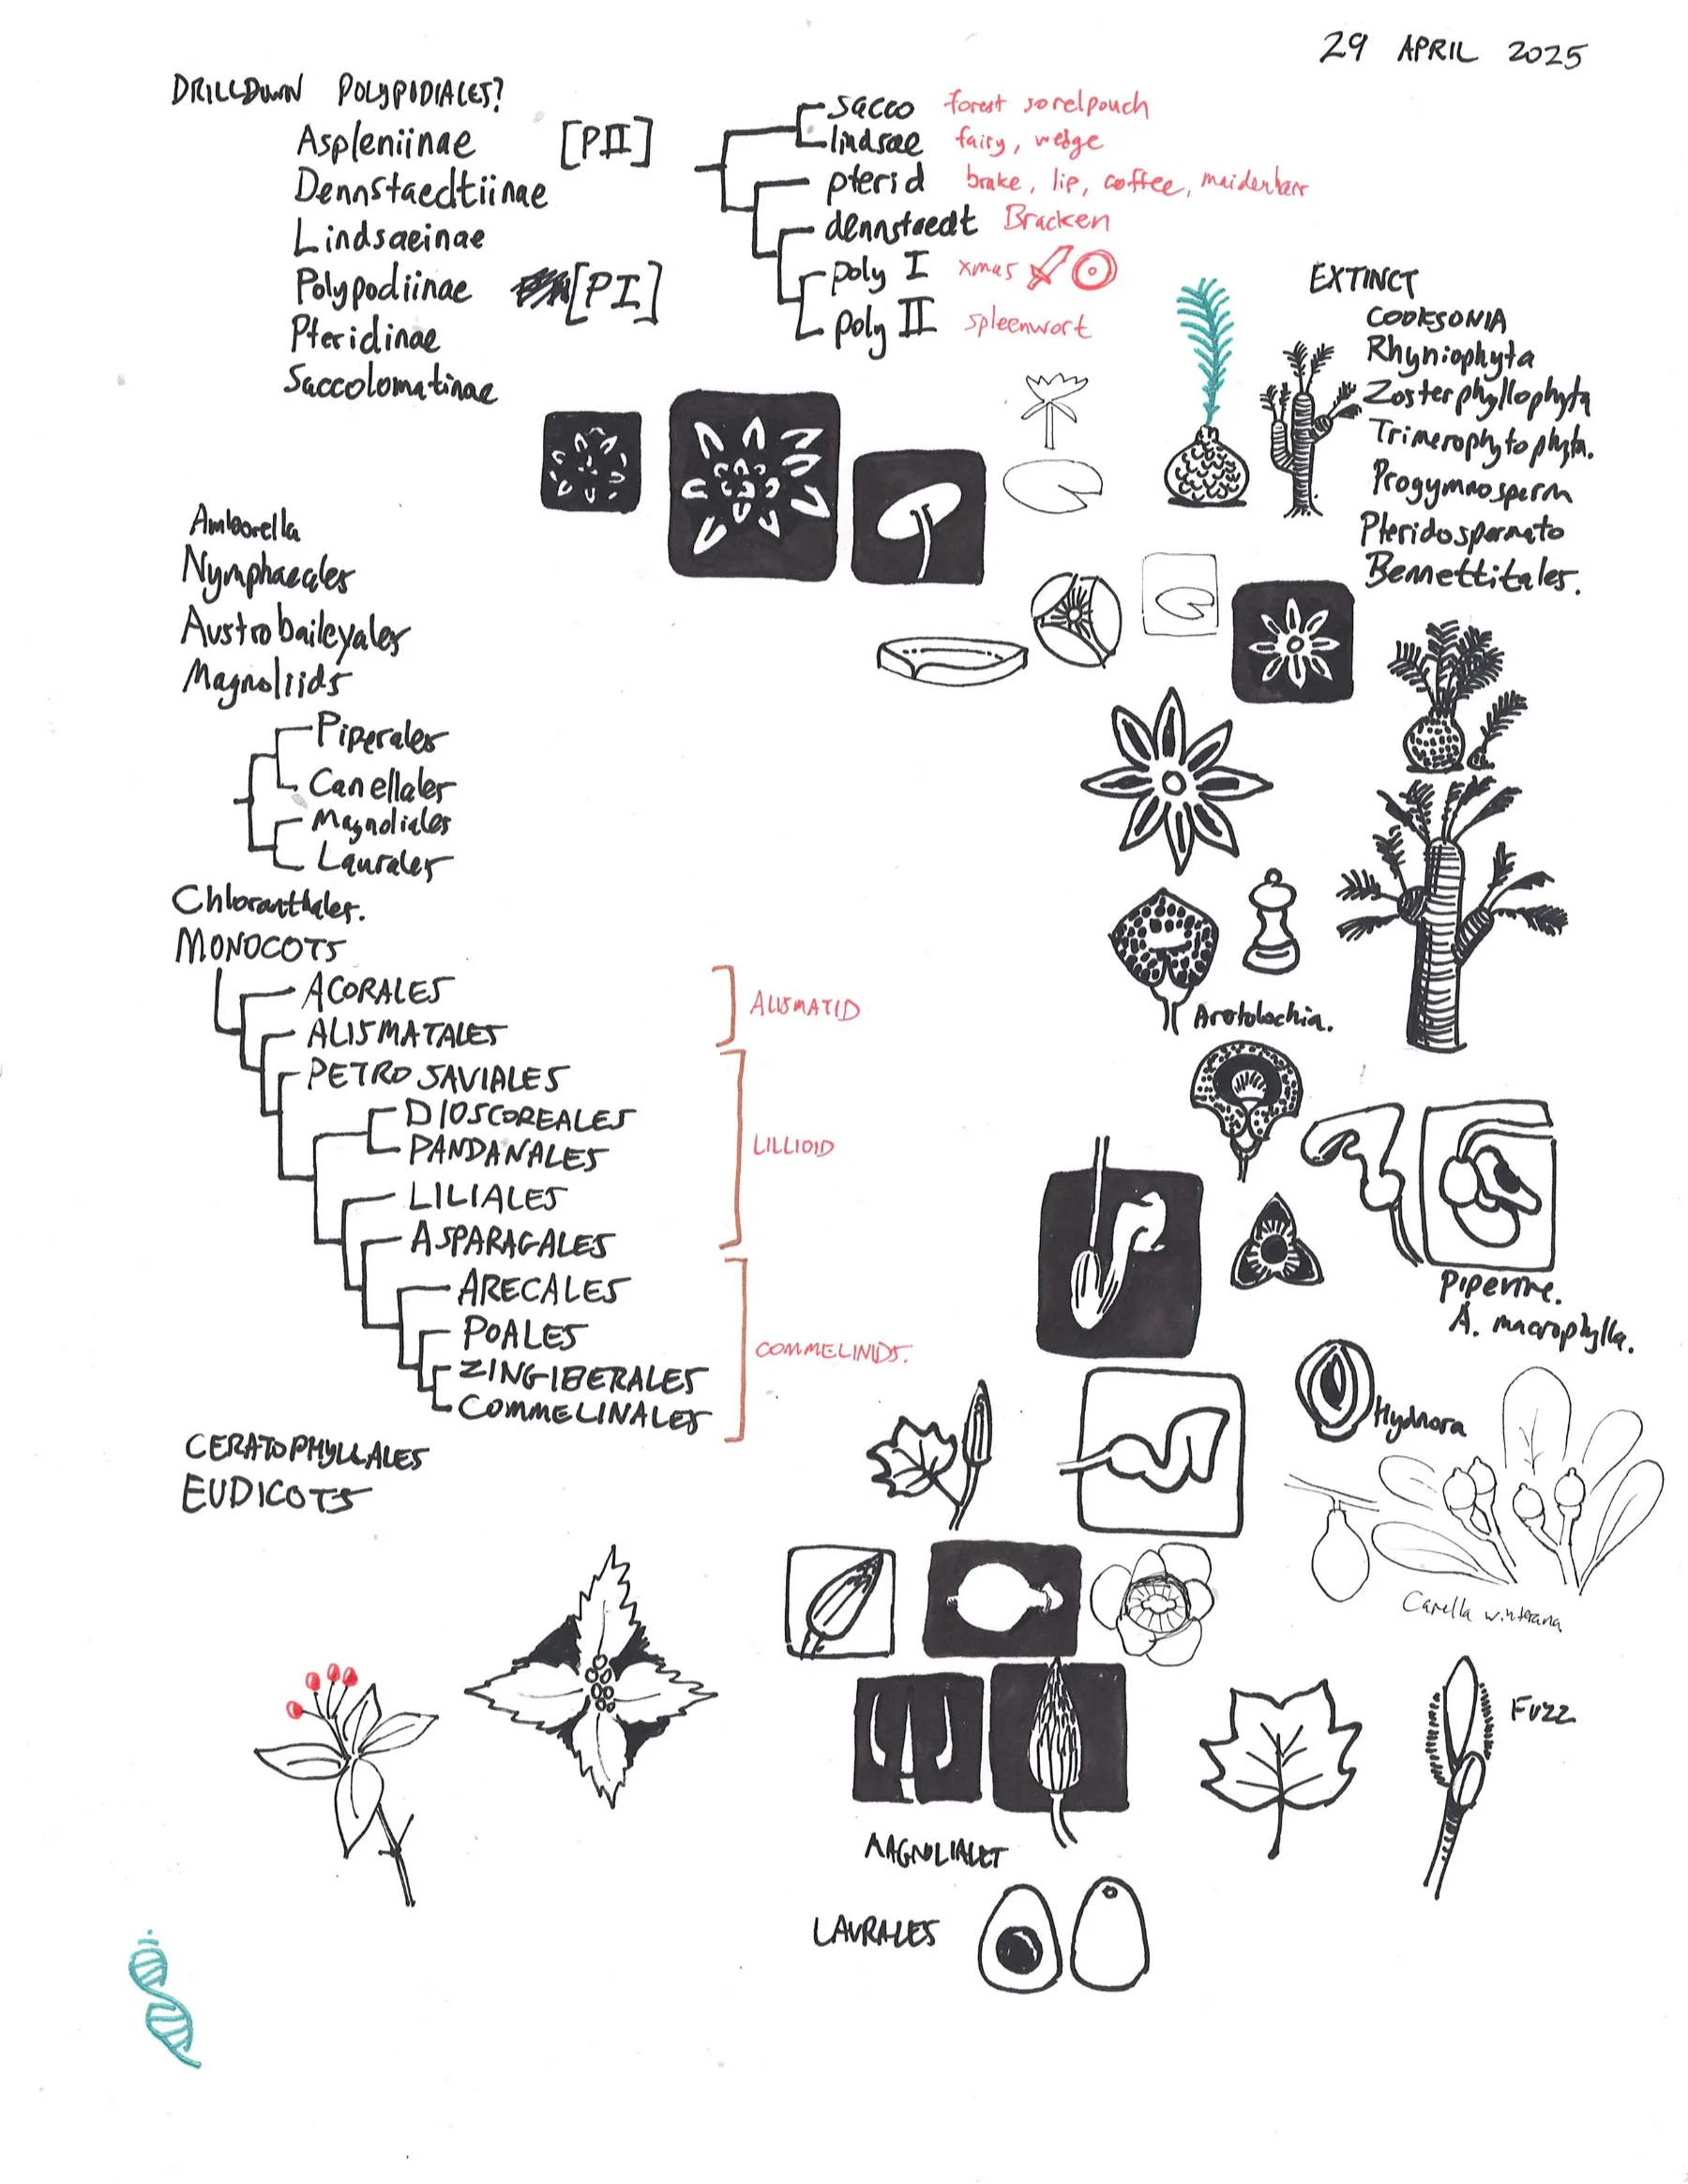 29 APRIL 2025
DRILLDOWN POLYPODIALES?
Aspleniinae [PII]
Dennstaedtiinae
Lindsaeinae
Polypodiinae [PI]
Pteridinae
Saccolomatinae
sacco forest sorelpouch
lindsae fairy, wedge
pterid brake, lip, coffee, maidenhair
dennstaedt Bracken
poly I xmas
poly II spleenwort
EXTINCT
COOKSONIA
Rhyniophyta
Zosterphyllophyta
Trimerophytophyta.
Progymnosperm
Pteridospermato
Bennettitales.
Amborella
Nymphaeales
Austrobaileyales
Magnoliids
Piperales
Canellales
Magnoliales
Laurales
Chloranthales.
MONOCOTS
ACORALES
ALISMATALES
ALISMATID
PETROSAVIALES
DIOSCOREALES
PANDANALES
LILIALES
ASPARAGALES
LILLIOID
ARECALES
POALES
ZINGIBERALES
COMMELINALES
COMMELINIDS.
CERATOPHYLLALES
EUDICOTS
Arotolochia.
Pipevine.
A. macrophylla.
Hydnora
Canella winterana
FUZZ
MAGNOLIALES
LAURALES